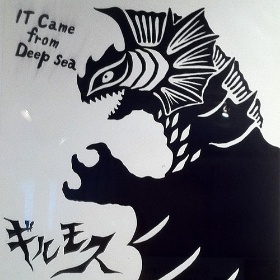 IT Came
from
Deep sea
ギルモス